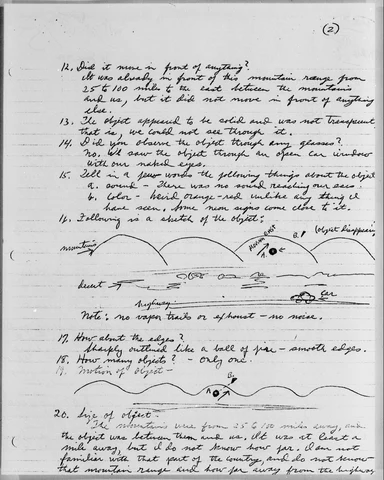 (2)
12. Did it move in front of anything?
It was already in front of this mountain range from
25 to 100 miles to the east between the mountains
and us, but it did not move in front of anything
else.
13. The object appeared to be solid and was not transparent
that is, we could not see through it.
14. Did you observe the object through any glasses?
No. We saw the object through an open car window
with our naked eyes.
15. Tell in a few words the following things about the object
a. sound - There was no sound reaching our ears.
b. Color - Weird orange-red unlike any thing I
have seen. Some neon signs come close to it.
16. Following is a sketch of the object:
mountains
A.
B.
(Object disappears
desert
highway
Car
Note: no vapor trails or exhaust - no noise.
17. How about the edges?
Sharply outlined like a ball of fire - smooth edges.
18. How many objects? - Only one.
19. Motion of object -
A
B.
20. Size of object -
The mountains were from 25 to 100 miles away, and
the object was between them and us. It was at least a
mile away, but I do not know how far. I am not
familiar with that part of the country, and do not know
that mountain range and how far away from the highway